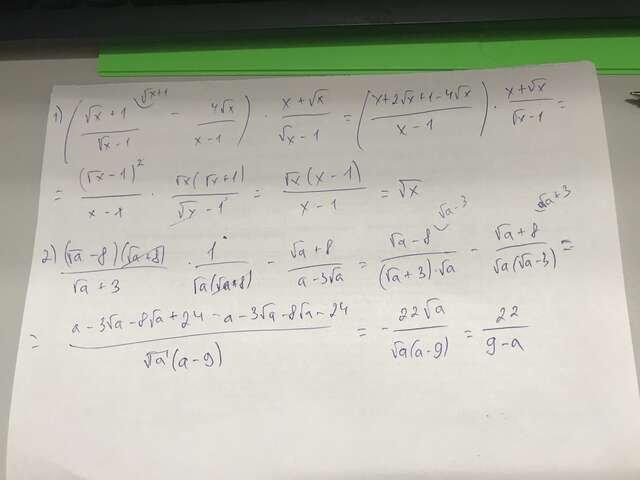 1) ( (√x + 1)/(√x - 1) ⌣√x+1 - 4√x/(x - 1) ) · (x + √x)/(√x - 1) = ( (x + 2√x + 1 - 4√x)/(x - 1) ) · (x + √x)/(√x - 1) =
= (√x - 1)²/(x - 1) · √x(√x + 1)/(√x - 1) = √x(x - 1)/(x - 1) = √x
2) (√a - 8)(√a + 8)/(√a + 3) · 1/(√a(√a + 8)) - (√a + 8)/(a - 3√a) = (√a - 8)/((√a + 3)·√a) ⌣√a - 3 - (√a + 8)/(√a(√a - 3)) ⌣√a + 3 =
= (a - 3√a - 8√a + 24 - a - 3√a - 8√a - 24)/(√a (a - 9)) = - 22√a/(√a(a - 9)) = 22/(9 - a)